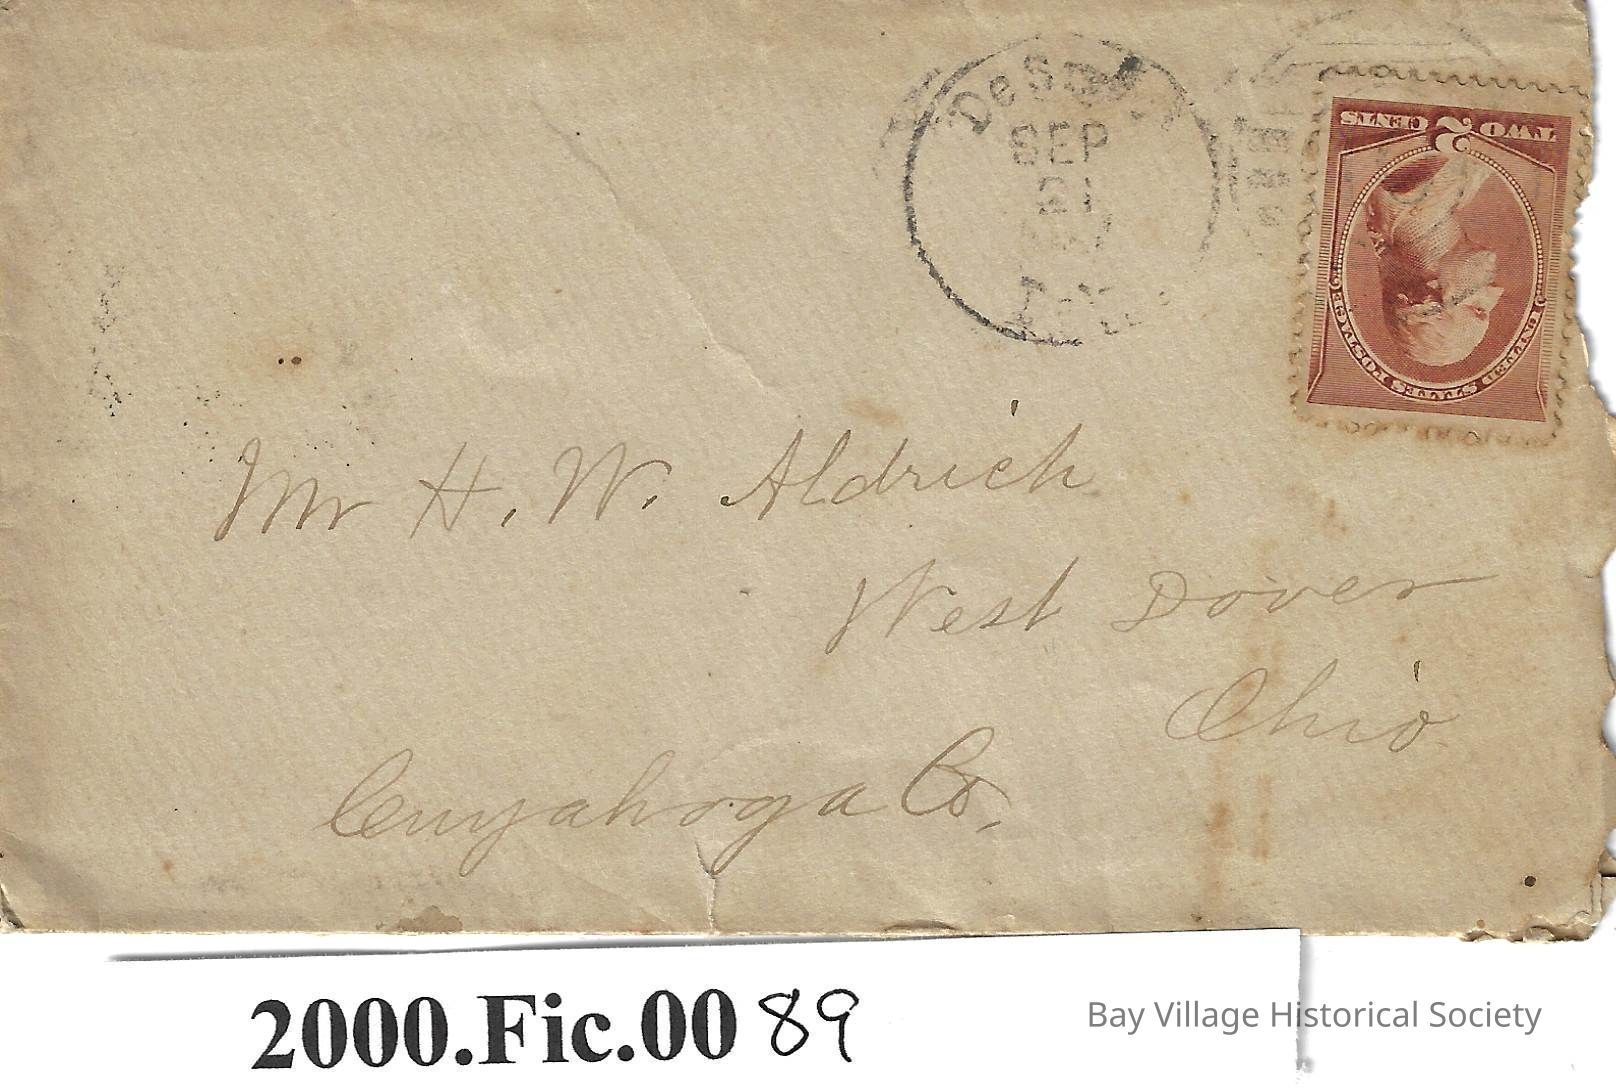 SEP
21
TWO 2 CENTS
UNITED STATES POSTAGE
Mr H. W. Aldrich
West Dover
Ohio
Cuyahoga Co.
2000.Fic.0089
Bay Village Historical Society